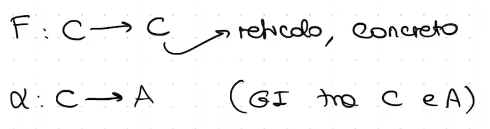 F : C → C → reticolo, concreto
α : C → A (GI tra C e A)